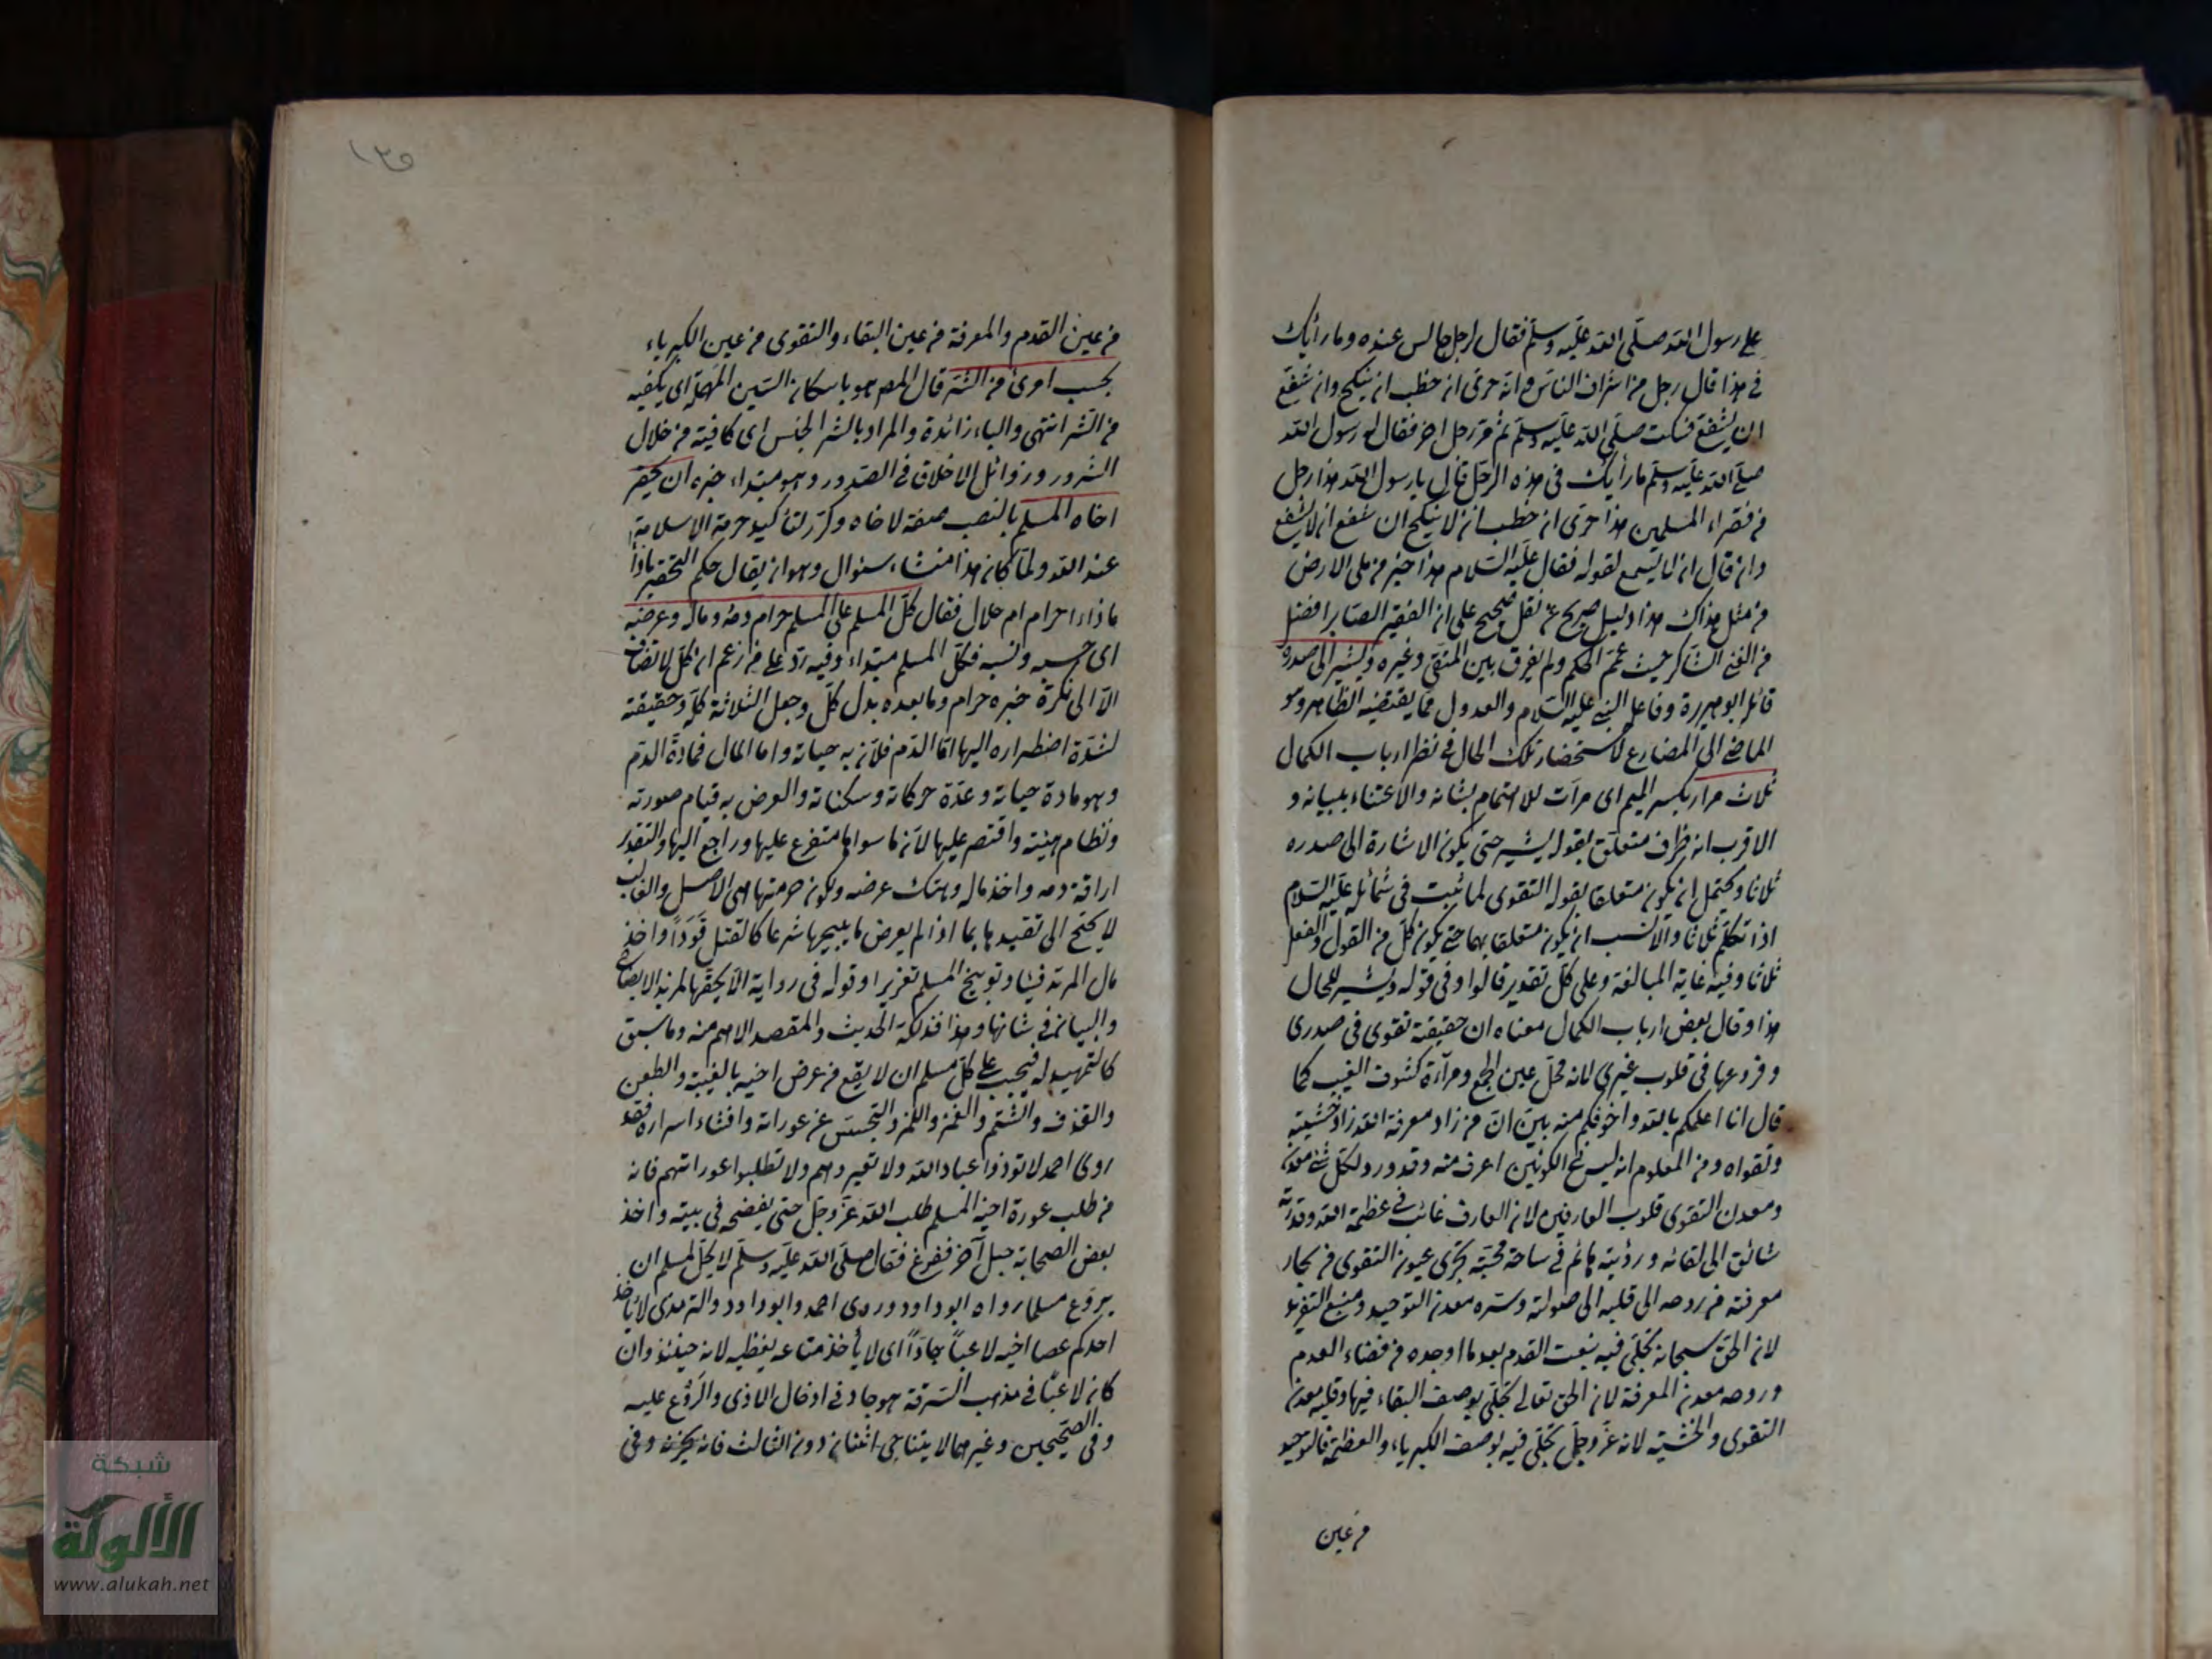 على رسول الله صلى الله عليه وسلم فقال لرجل جالس عنده وما رأيك
في هذا قال رجل من اشراف الناس وانه حرى ان خطب ان ينكح وان شفع
ان يشفع فسكت صلى الله عليه وسلم ثم مر رجل اخر فقال له رسول الله
صلى الله عليه وسلم ما رأيك في هذه الرجل قال يا رسول الله هذا رجل
من فقراء المسلمين هذا حرى ان خطب ان لا ينكح ان شفع ان لا يشفع
وان قال ان لا يسمع لقوله فقال عليه السلام هذا خير من ملئ الارض
من مثل هذاك هذا دليل صريح نقل صحيح على ان الفقير الصابر افضل
من الغني الشاكر حيث عمم الحكم ولم يفرق بين المتقي وغيره ويشير الى صدره
قائله ابو هريرة وفاعله النبي عليه السلام والعدول مما يقتضيه الظاهر وهو
الماضي الى المضارع لاستحضار تلك الحال في نظر ارباب الكمال
ثلاث مرار بكسر الميم اى مرات للاهتمام بشانه والاعتناء ببيانه و
الاقرب انه ظرف متعلق بقوله يشير حتى يكون الاشارة الى صدره
ثلاثا ويحتمل ان يكون متعلقا بقوله التقوى لما ثبت في شمائله عليه السلام
اذا تكلم ثلاثا والانسب ان يكون متعلقا بهما حتى يكون كل من القول والفعل
ثلاثا وفيه غاية المبالغة وعلى كل تقدير قالوا وفي قوله ويشير للحال
هذا وقال بعض ارباب الكمال معناه ان حقيقة تقوى في صدرى
وفروعها في قلوب غيري لانه محل عين الجمع ومرآة كشوف الغيب كما
قال انا اعلمكم بالله واخوفكم منه بين ان من زاد معرفة الله زاد خشيته
وتقواه ومن المعلوم انه ليس في الكونين اعرف منه وقد ورد لكل شئ معدن
ومعدن التقوى قلوب العارفين لان العارف غائب في عظمة الله وقدرته
شائق الى لقائه ورؤيته هائم في ساحة محبته تجرى عيون التقوى من بحار
معرفته من روحه الى قلبه الى صولته وستره معدن التوحيد ومنبع التفريد
لان الحق سبحانه تجلى فيه بنعت القدم بعد ما اوجده من فضاء العدم
وروحه معدن المعرفة لان الحق تعالى تجلى بوصف البقاء فيها وقلبه معدن
التقوى والخشية لانه عز وجل تجلى فيه بوصف الكبرياء والعظمة فالتوحيد
من عين
١٣٥
من عين القدم والمعرفة من عين البقاء والتقوى من عين الكبرياء
بحسب امرئ من الشر قال المص هو باسكان السين المهملة اى يكفيه
من الشر انتهى والباء زائدة والمراد بالشر الجنس اى كافية من خلال
الشرور ورذائل الاخلاق في الصدور وهو مبتداء خبره ان يحقر
اخاه المسلم بالنصب صفة لاخاه وكرر لتأكيد حرمة الاسلامية
عند الله ولما كان هذا منشاء سنوال وهو ان يقال حكم التحقير باذا
ماذا احرام ام حلال فقال كل المسلم على المسلم حرام دمه وماله وعرضه
اى حسبه ونسبه فكل المسلم مبتداء وفيه رد على من زعم ان كل لا تضاف
الا الى نكرة خبره حرام وما بعده بدل كل وجعل الثلاثة كله وحقيقته
لشدة اضطراره اليها اما الدم فلان به حياته واما المال فمادة الدم
وهو مادة حياته وعدة حركاته وسكناته والعرض به قيام صورته
ونظام هيئته واقتصر عليها لان ما سواها متفرع عليها وراجع اليها والتقدير
اراقة دمه واخذ ماله وهتك عرضه ولكون حرمتها هى الاصل والغالب
لا يحتج الى تقييدها بما اذا لم يعرض ما يبيحها شرعا كالقتل قودا واخذ
مال المرتد فيئا وتوبيخ المسلم تعزيرا وقوله في رواية الا بحقها لمزيد الايضاح
والبيان في شانها وهذا فذلكة الحديث والمقصد الاهم منه وما سبق
كالتمهيد له فيجب على كل مسلم ان لا يقع من عرض اخيه بالغيبة والطعن
والقذف والشتم والغمز واللمز والتجسس عن عوراته وافشاء اسراره فقد
روى احمد لا تؤذوا عباد الله ولا تعيروهم ولا تطلبوا عوراتهم فانه
من طلب عورة اخيه المسلم طلب الله عز وجل حتى يفضحه في بيته واخذ
بعض الصحابة حبل آخر ففزع فقال صلى الله عليه وسلم لا يحل لمسلم ان
يروع مسلما رواه ابو داود وروى احمد وابو داود والترمذى لا يأخذ
احدكم عصا اخيه لاعبا جادا اى لا يأخذ متاعه يغيظه لانه حينئذ وان
كان لاعبا في مذهب السرقة هو جاد في ادخال الاذى والروع عليه
وفي الصحيحين وغيرهما لا يتناجى اثنان دون الثالث فانه يحزنه وفى
شبكة
الألوكة
www.alukah.net